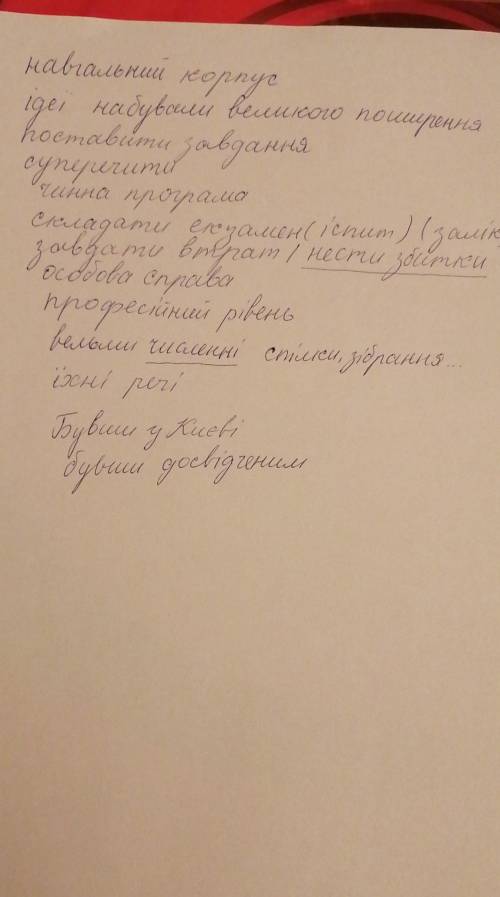 навчальний корпус
ідеї набували великого поширення
поставити завдання
суперечити
чинна програма
складати екзамен (іспит) (залік)
завдати втрат / нести збитки
особова справа
професійний рівень
вельми численні спілки, зібрання...
їхні речі
Бувши у Києві
бувши досвідченим